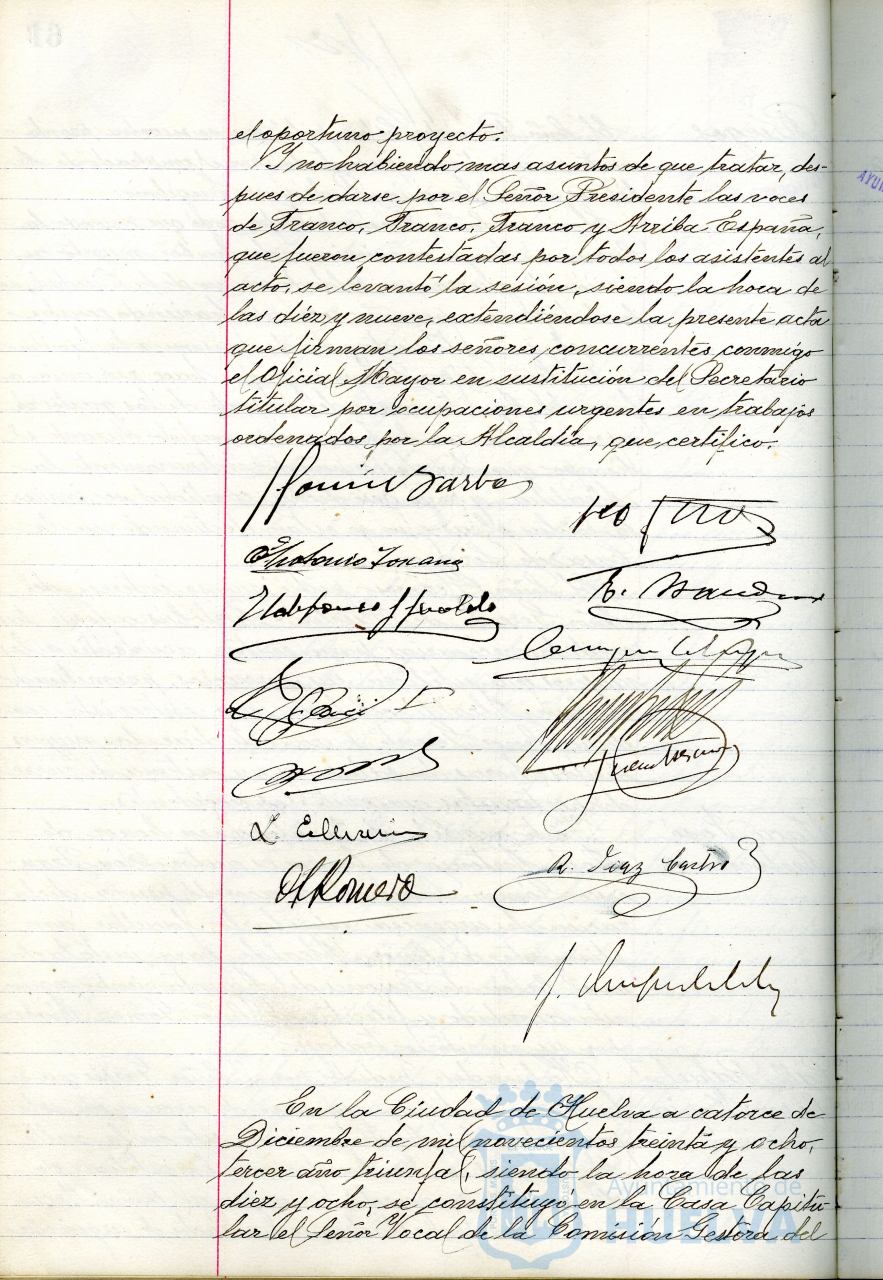 el oportuno proyecto.
Y no habiendo mas asuntos de que tratar, des-
pues de darse por el Señor Presidente las voces
de Franco, Franco, Franco y Arriba España,
que fueron contestadas por todos los asistentes al
acto, se levantó la sesión, siendo la hora de
las diéz y nueve, extendiéndose la presente acta
que firman los señores concurrentes conmigo
el Oficial Mayor en sustitución del Secretario
titular por ocupaciones urgentes en trabajos
ordenados por la Alcaldía, que certifico.
Barba
E.
Ildefonso
L.
Romero
R. Diaz Castro
J.
En la Ciudad de Huelva a catorce de
Diciembre de mil novecientos treinta y ocho,
tercer año triunfal, siendo la hora de las
diez y ocho, se constituyó en la Casa Capitu-
lar el Señor Vocal de la Comisión Gestora del
Ayuntamiento de
HUELVA